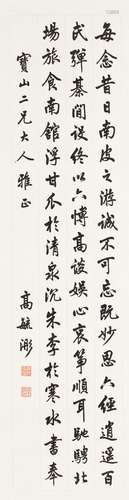 每念昔日南皮之游誠不可忘既妙思六經逍遥百
氏彈棊間設終以六博高談娱心哀箏順耳馳騁北
場旅食南館浮甘瓜於清泉沉朱李於寒水書奉
寶山二兄大人雅正
高毓浵